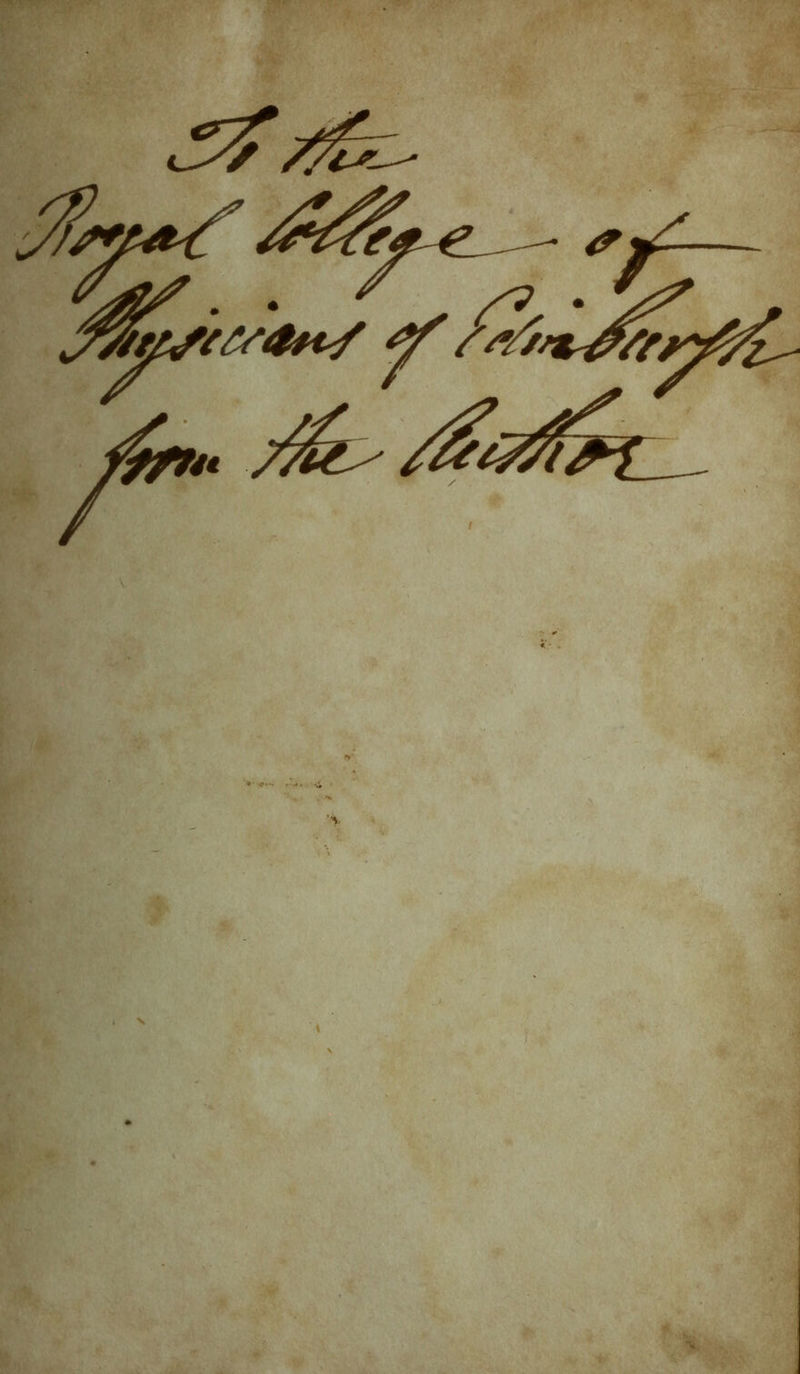 To the
Royal College of
Physicians of Edinburgh
from the Author